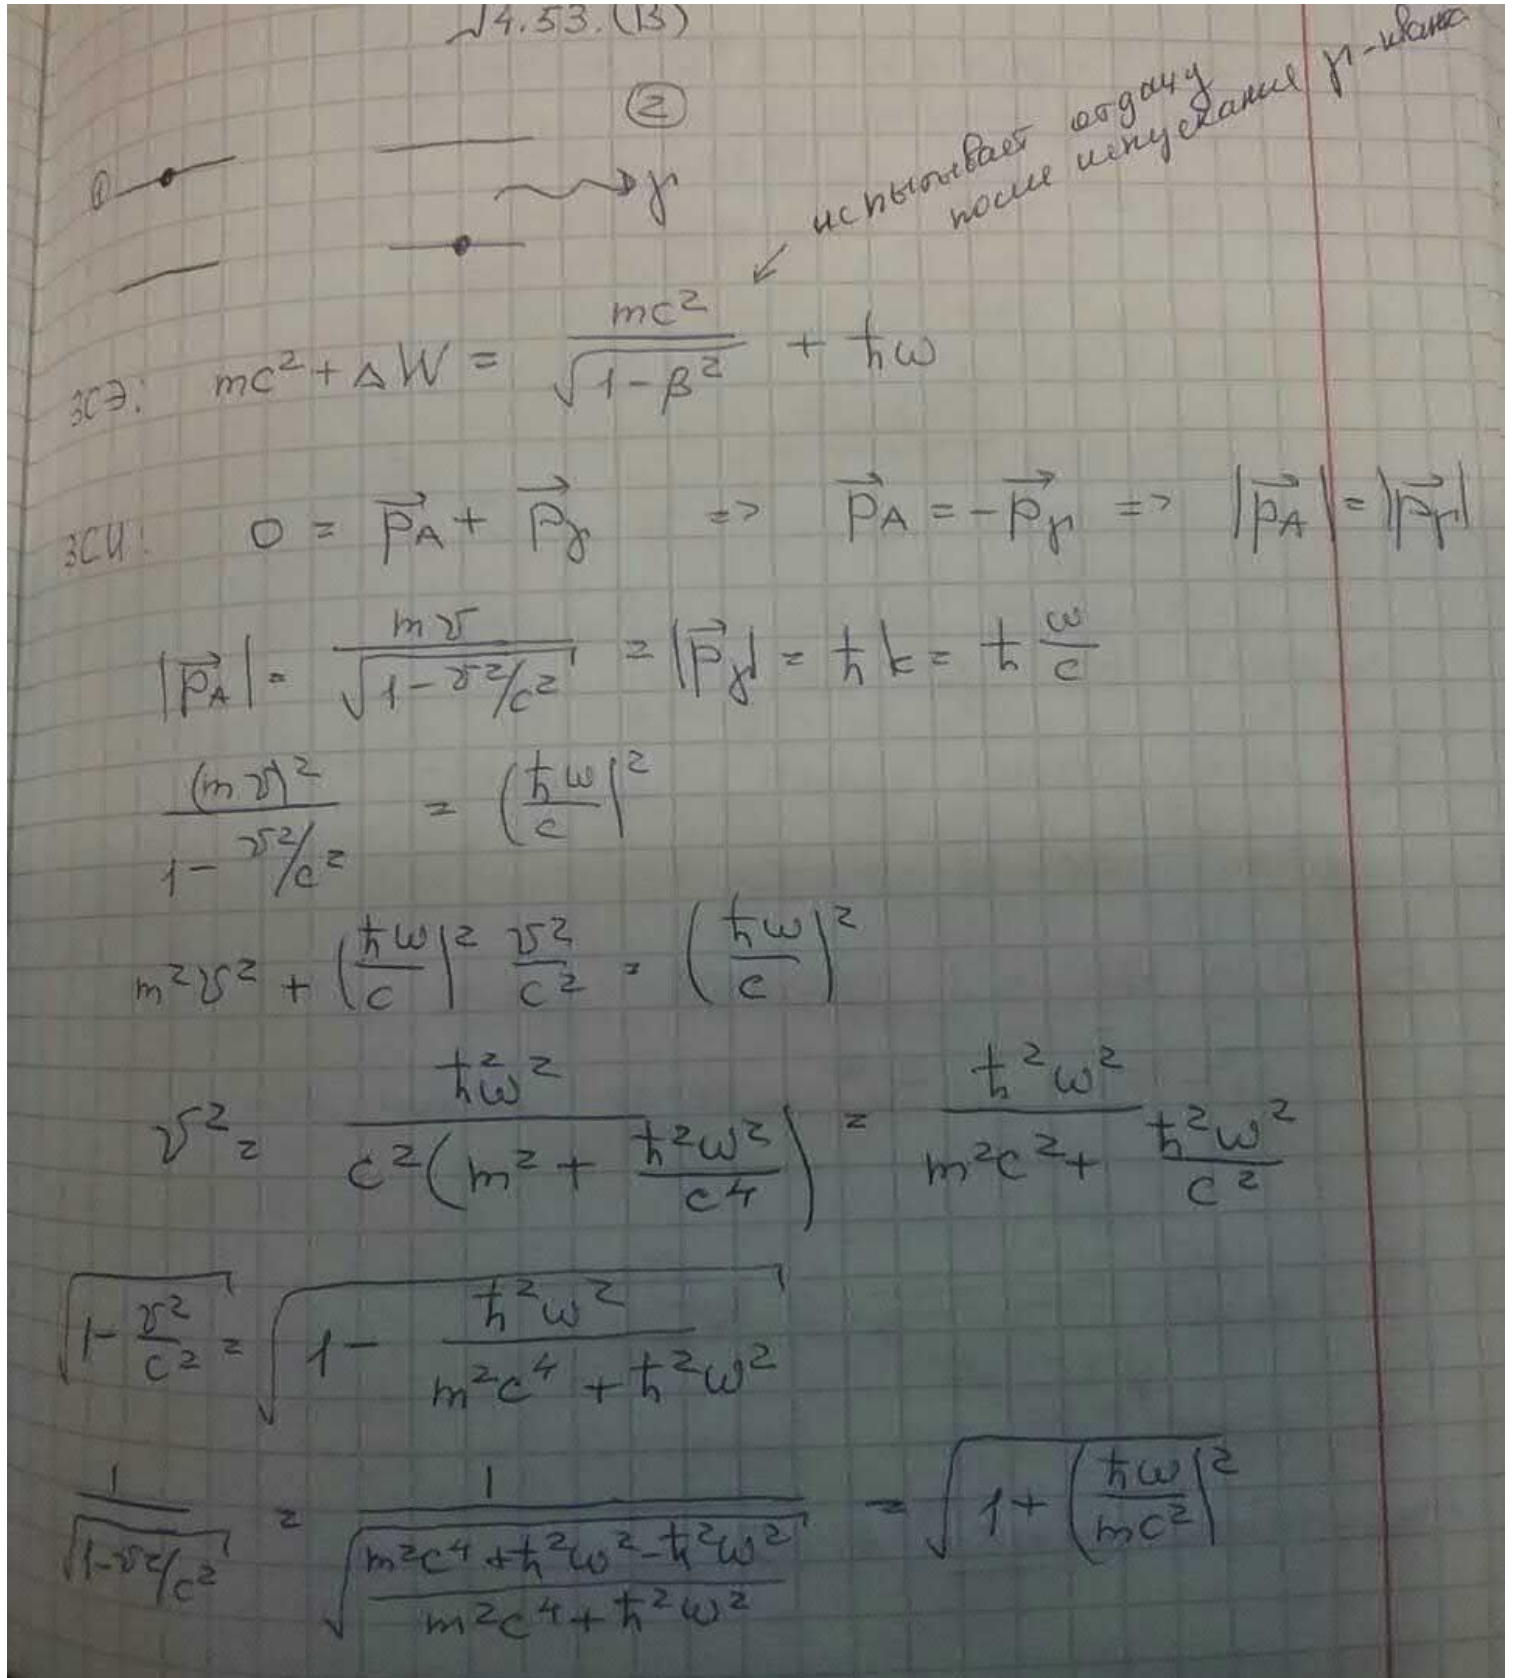 √4.53.(В)
① ②
γ
испытывает отдачу
после испускания γ-кванта
ЗСЭ: mc² + ΔW = mc²/√(1-β²) + ħω
ЗСИ: 0 = p⃗_A + p⃗_γ => p⃗_A = -p⃗_γ => |p⃗_A| = |p⃗_γ|
|p⃗_A| = mv/√(1-v²/c²) = |p⃗_γ| = ħk = ħ ω/c
(mv)²/(1-v²/c²) = (ħω/c)²
m²v² + (ħω/c)² v²/c² = (ħω/c)²
v² = ħ²ω²/(c²(m² + ħ²ω²/c⁴)) = ħ²ω²/(m²c² + ħ²ω²/c²)
√(1-v²/c²) = √(1 - ħ²ω²/(m²c⁴ + ħ²ω²))
1/√(1-v²/c²) = 1/√((m²c⁴ + ħ²ω² - ħ²ω²)/(m²c⁴ + ħ²ω²)) = √(1 + (ħω/mc²)²)